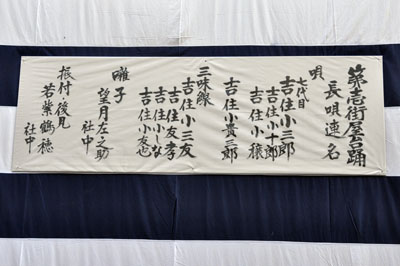 第壱街屋台踊
長唄連名
唄
七代目
吉住小三郎
吉住小十郎
吉住小穣
吉住小貴三郎
三味線
吉住小三友
吉住友孝
吉住小しな
吉住小友也
囃子
望月左之助
社中
振付・後見
若紫鶴穂
社中